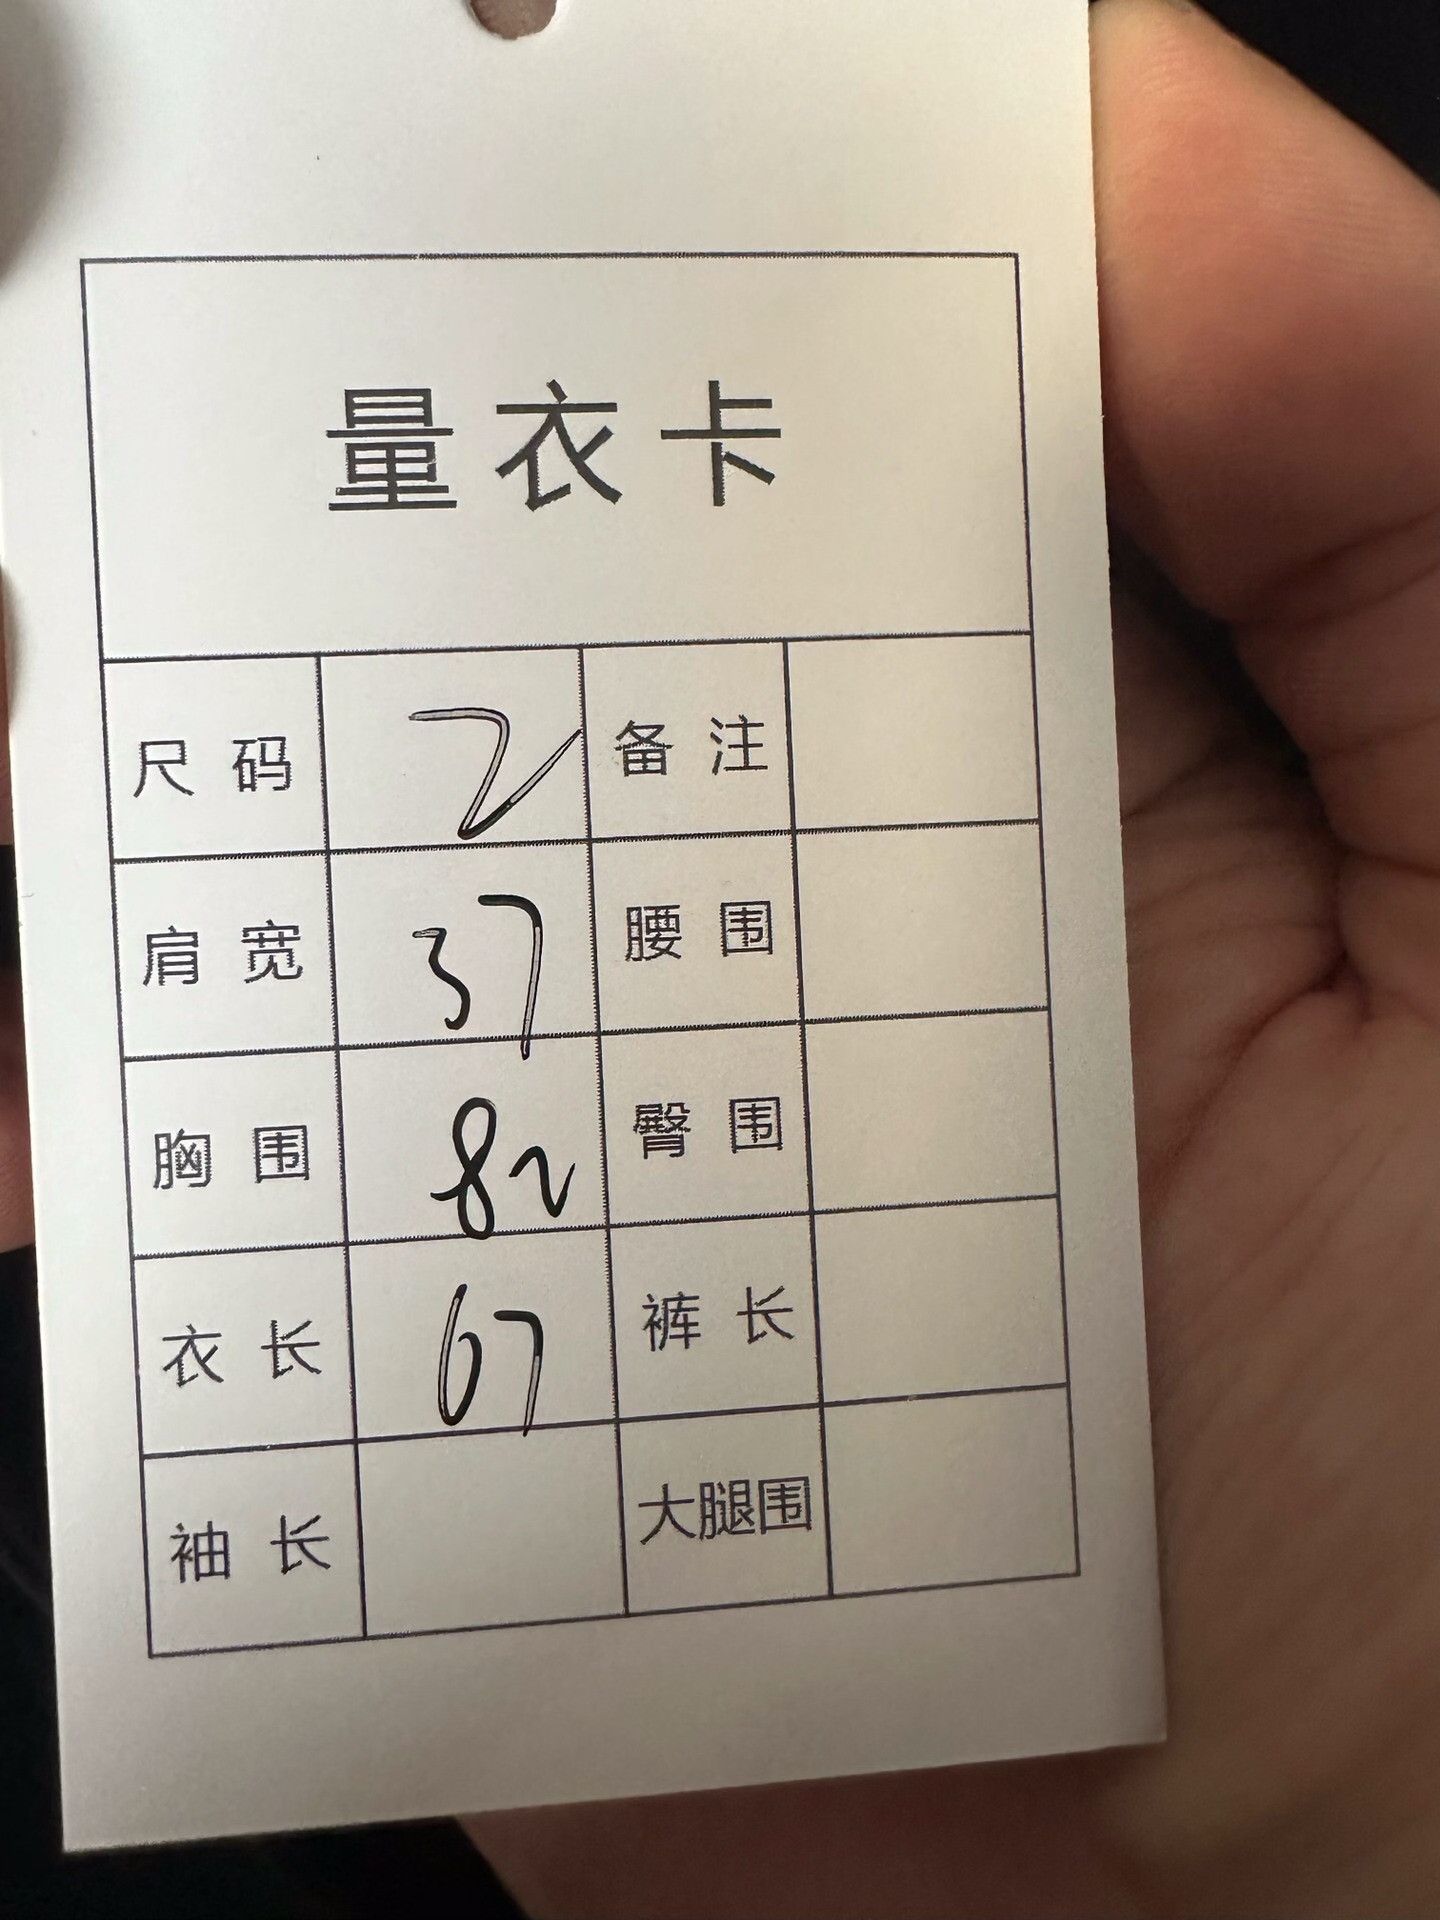 量衣卡
尺码 2 备注
肩宽 37 腰围
胸围 82 臀围
衣长 67 裤长
袖长 大腿围